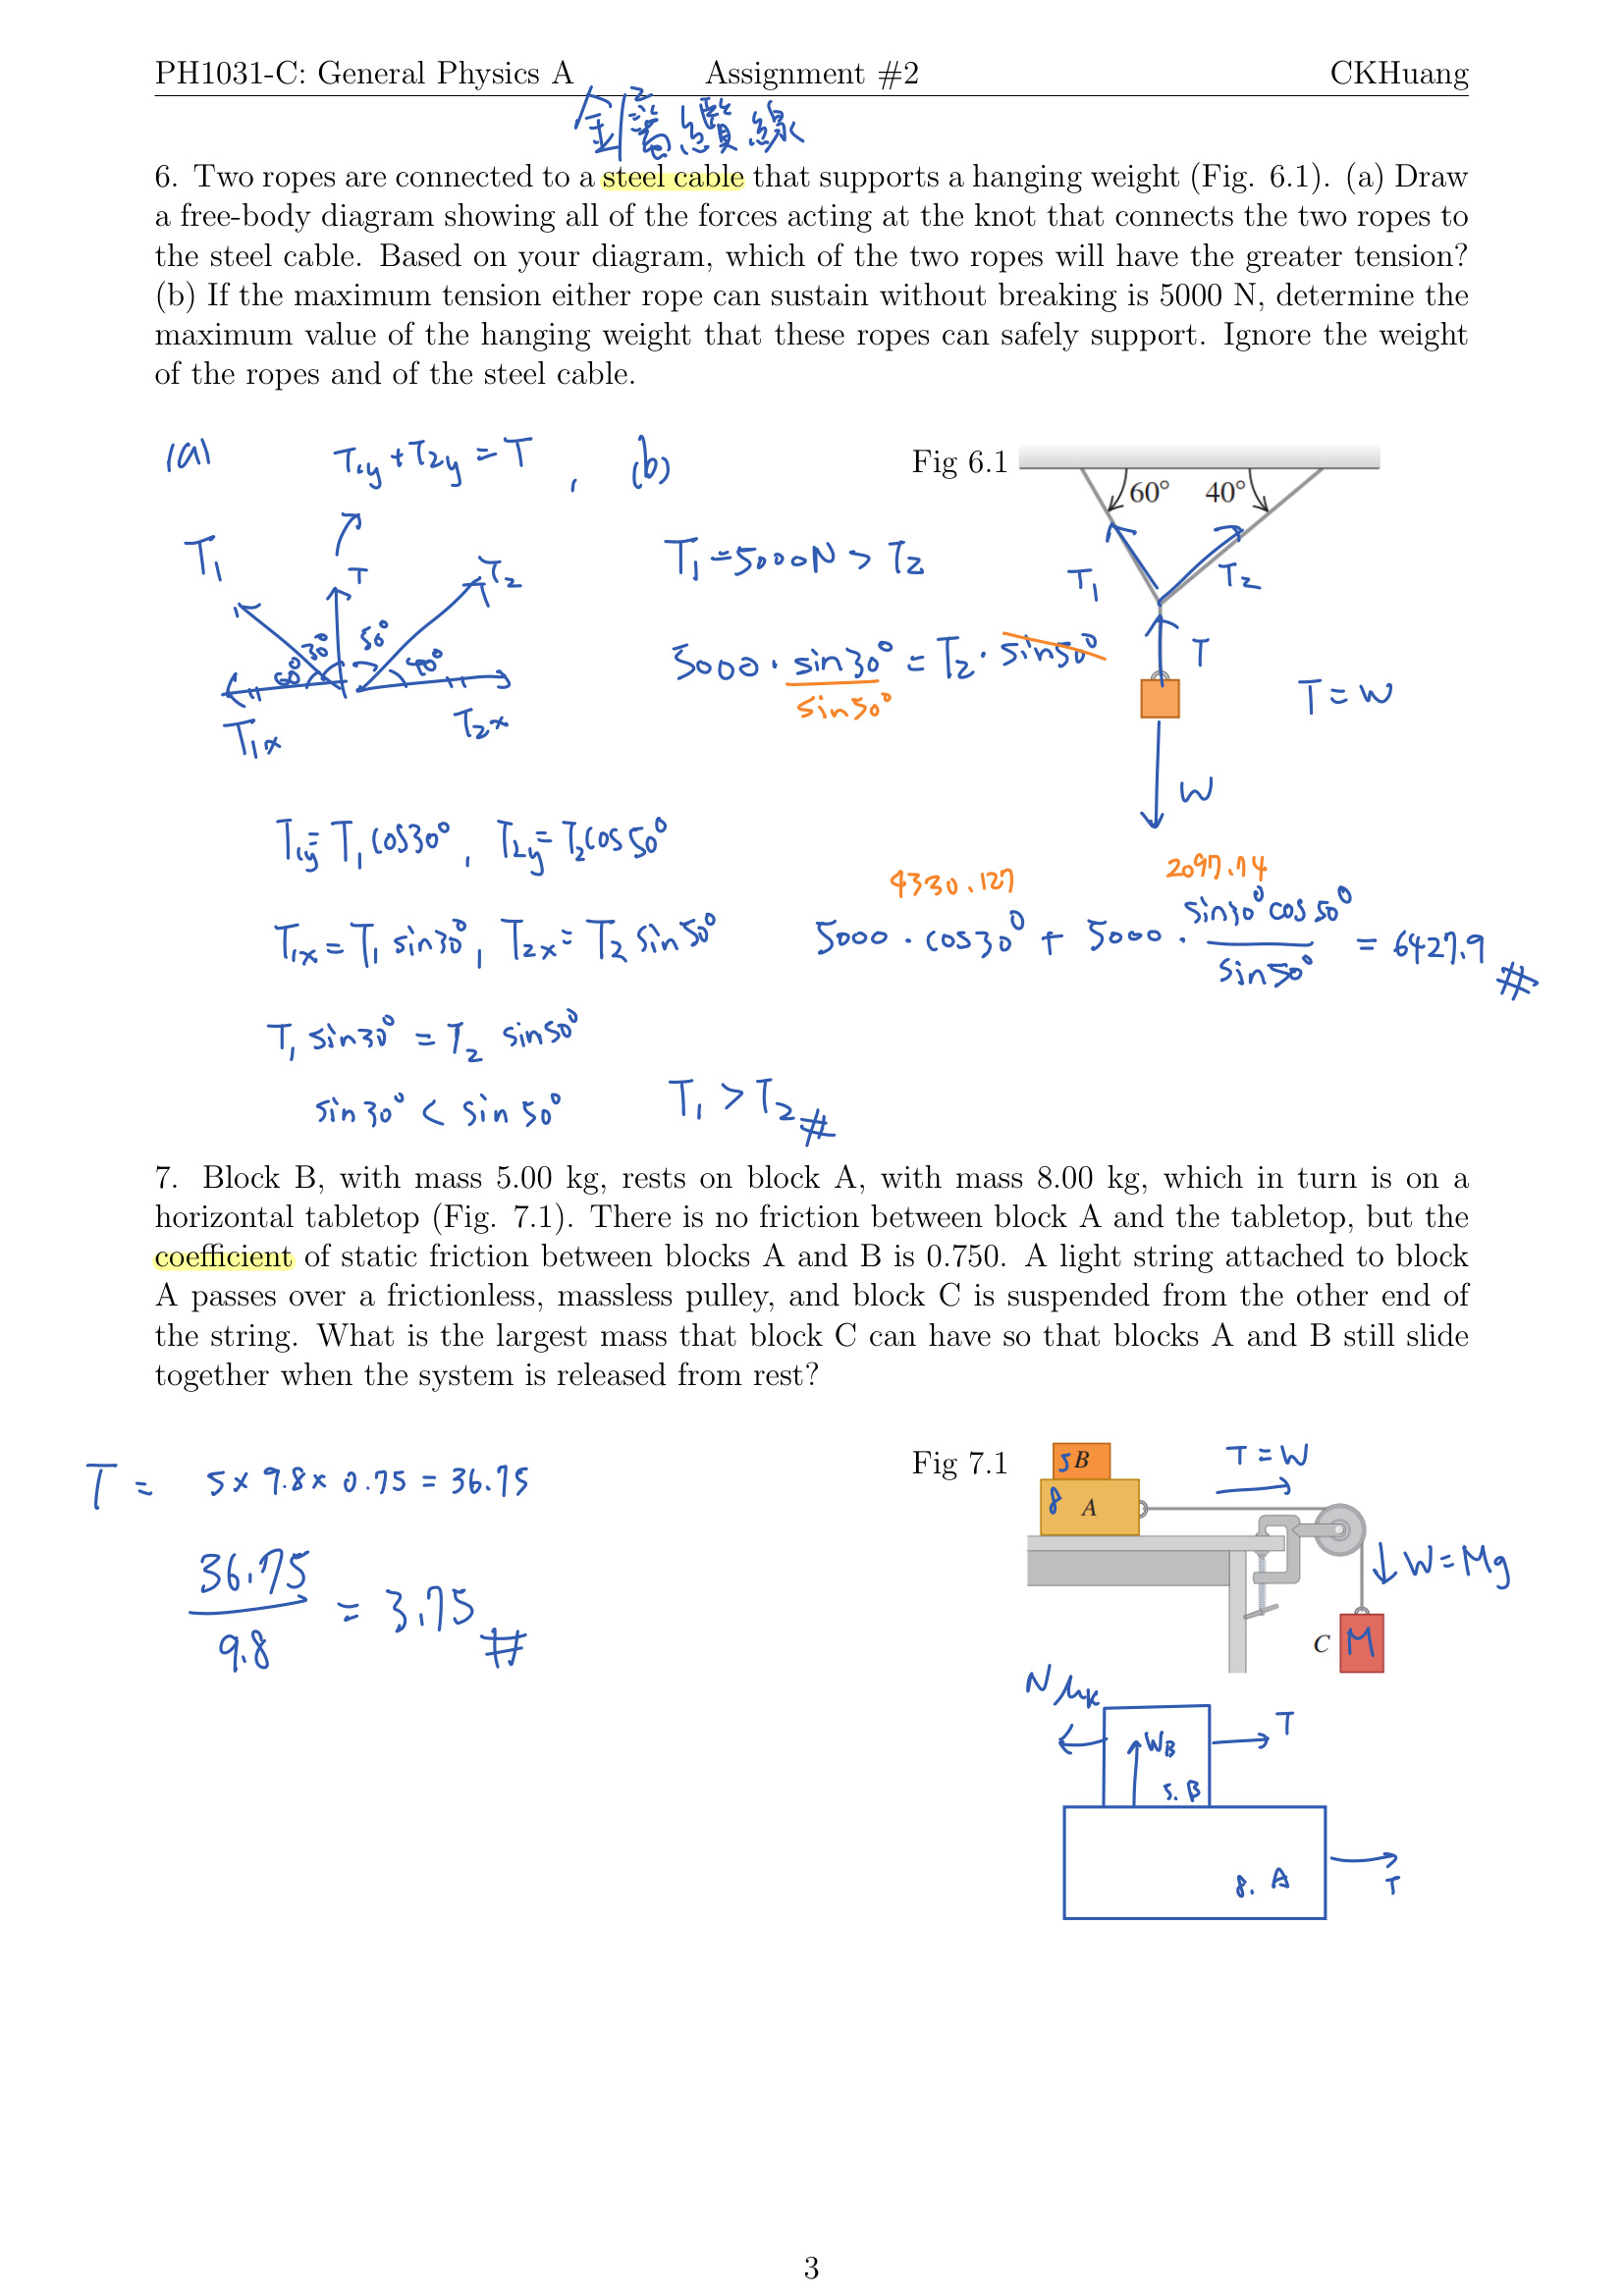 PH1031-C: General Physics A Assignment #2 CKHuang
6. Two ropes are connected to a steel cable that supports a hanging weight (Fig. 6.1). (a) Draw
a free-body diagram showing all of the forces acting at the knot that connects the two ropes to
the steel cable. Based on your diagram, which of the two ropes will have the greater tension?
(b) If the maximum tension either rope can sustain without breaking is 5000 N, determine the
maximum value of the hanging weight that these ropes can safely support. Ignore the weight
of the ropes and of the steel cable.
(a) T1y + T2y = T , (b)
Fig 6.1
60° 40°
T1 T T2
30° 50°
60° 40°
T1x T2x
T1 = 5000N > T2
5000 · sin30° = T2 · sin50°
sin50°
T1 T2
T
T = W
W
T1y = T1 cos30° , T2y = T2 cos50°
4330.127 2097.74
T1x = T1 sin30° , T2x = T2 sin50°
5000 · cos30° + 5000 · sin30° cos50° / sin50° = 6427.9 #
T1 sin30° = T2 sin50°
sin30° < sin50° T1 > T2 #
7. Block B, with mass 5.00 kg, rests on block A, with mass 8.00 kg, which in turn is on a
horizontal tabletop (Fig. 7.1). There is no friction between block A and the tabletop, but the
coefficient of static friction between blocks A and B is 0.750. A light string attached to block
A passes over a frictionless, massless pulley, and block C is suspended from the other end of
the string. What is the largest mass that block C can have so that blocks A and B still slide
together when the system is released from rest?
T = 5 × 9.8 × 0.75 = 36.75
36.75 / 9.8 = 3.75 #
Fig 7.1
5 B
8 A
T = W
↓ W = Mg
C M
Nμk
WB T
5. B
8. A T
3